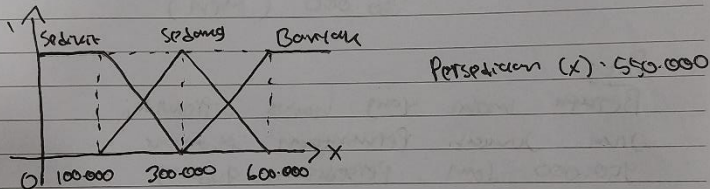 1
Sedikit Sedang Banyak
Persediaan (X) : 550.000
0 100.000 300.000 600.000 X